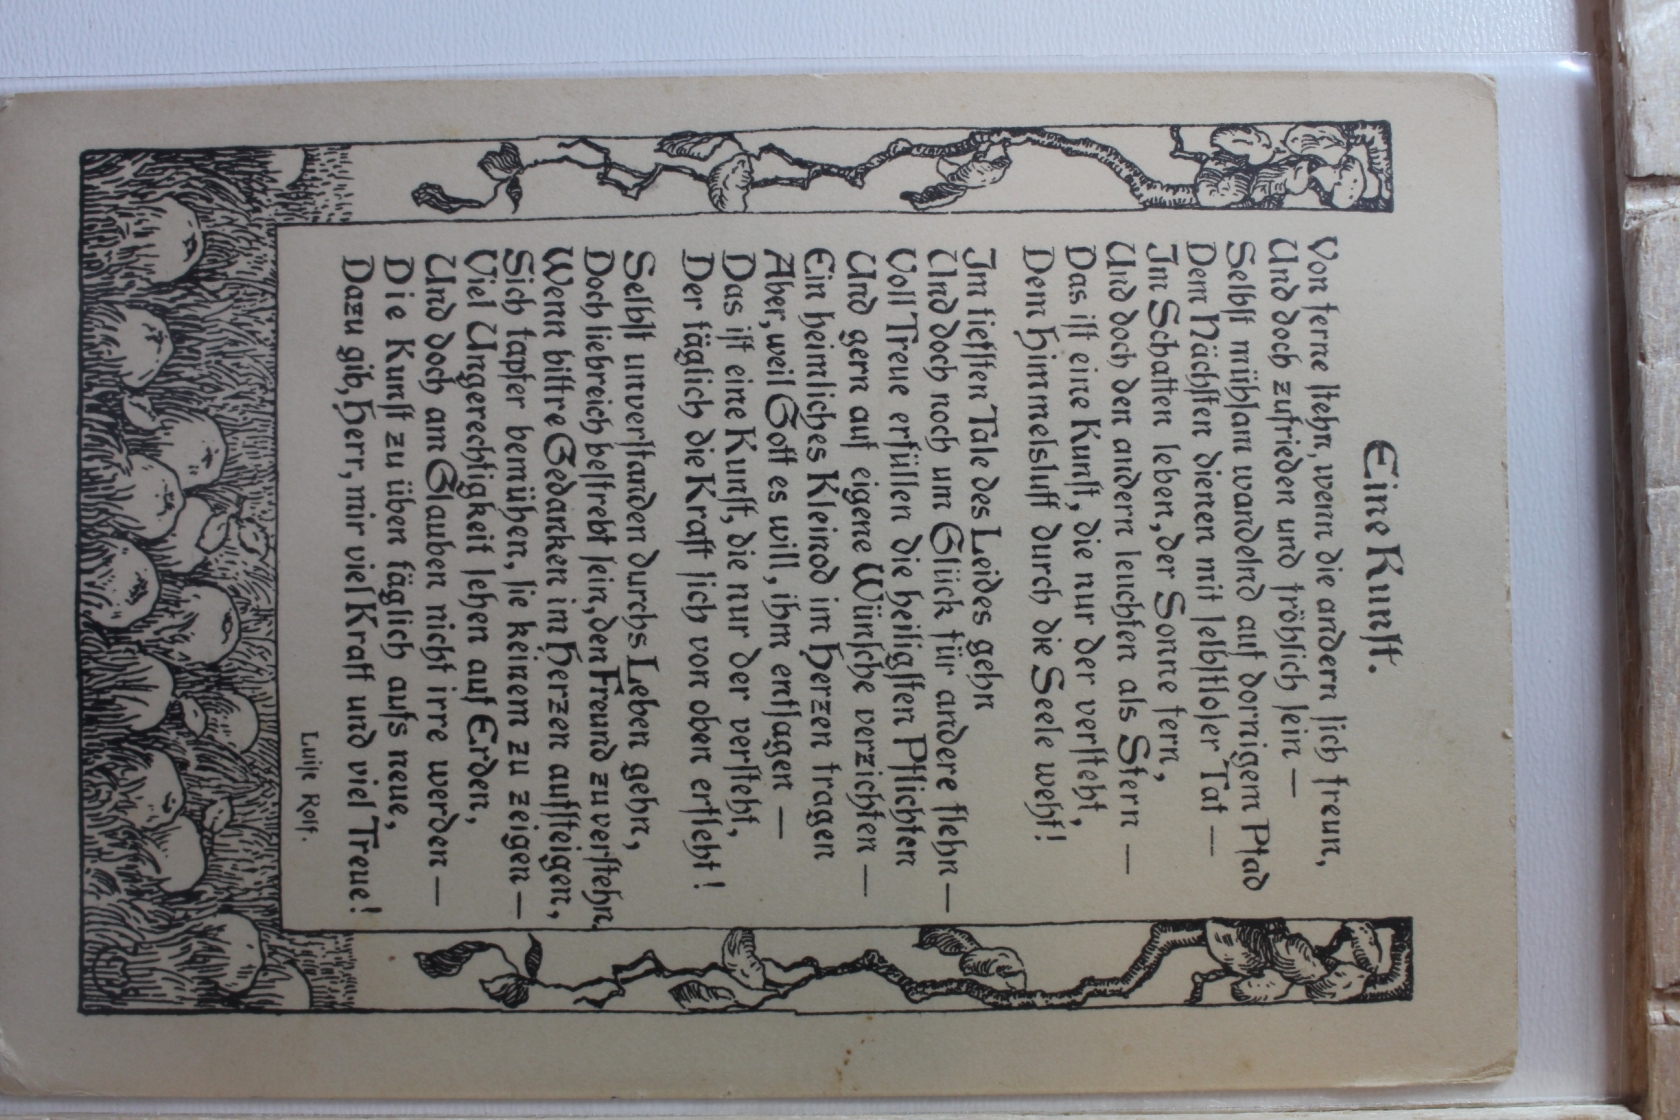 Eine Kunst.
Von ferne stehn, wenn die andern sich freun,
Und doch zufrieden und fröhlich sein —
Selbst mühsam wandelnd auf dornigem Pfad
Dem Nächsten dienen mit selbstloser Tat —
Im Schatten leben, der Sonne fern,
Und doch den andern leuchten als Stern —
Das ist eine Kunst, die nur der versteht,
Dem Himmelsluft durch die Seele weht!
Im tiefsten Tale des Leides gehn
Und doch noch um Glück für andere flehn —
Voll Treue erfüllen die heiligsten Pflichten
Und gern auf eigene Wünsche verzichten —
Ein heimliches Kleinod im Herzen tragen
Aber, weil Gott es will, ihm entsagen —
Das ist eine Kunst, die nur der versteht,
Der täglich die Kraft sich von oben erfleht!
Selbst unverstanden durchs Leben gehn,
Doch liebreich bestrebt sein, den Freund zu verstehn,
Wenn bittre Gedanken im Herzen aufsteigen,
Sich tapfer bemühen, sie keinem zu zeigen —
Viel Ungerechtigkeit sehen auf Erden,
Und doch am Glauben nicht irre werden —
Die Kunst zu üben täglich aufs neue,
Dazu gib, Herr, mir viel Kraft und viel Treue!
Luise Rolf.